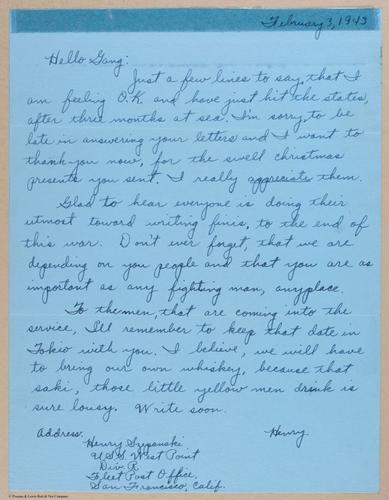 February 3, 1943
Hello Gang:
Just a few lines to say, that I
am feeling O.K. and have just hit the states,
after three months at sea. I'm sorry, to be
late in answering your letters and I want to
thank you now, for the swell christmas
presents you sent. I really appreciate them.
Glad to hear everyone is doing their
utmost toward writing finis, to the end of
this war. Don't ever forget, that we are
depending on you people and that you are as
important as any fighting man, anyplace.
To the men, that are coming into the
service, I'll remember to keep that date in
Tokio with you. I believe, we will have
to bring our own whiskey, because that
saki, those little yellow men drink is
sure lousy. Write soon.
Henry
Address:
Henry
U.S.S. West Point
Div. R.
Fleet Post Office,
San Francisco, Calif.